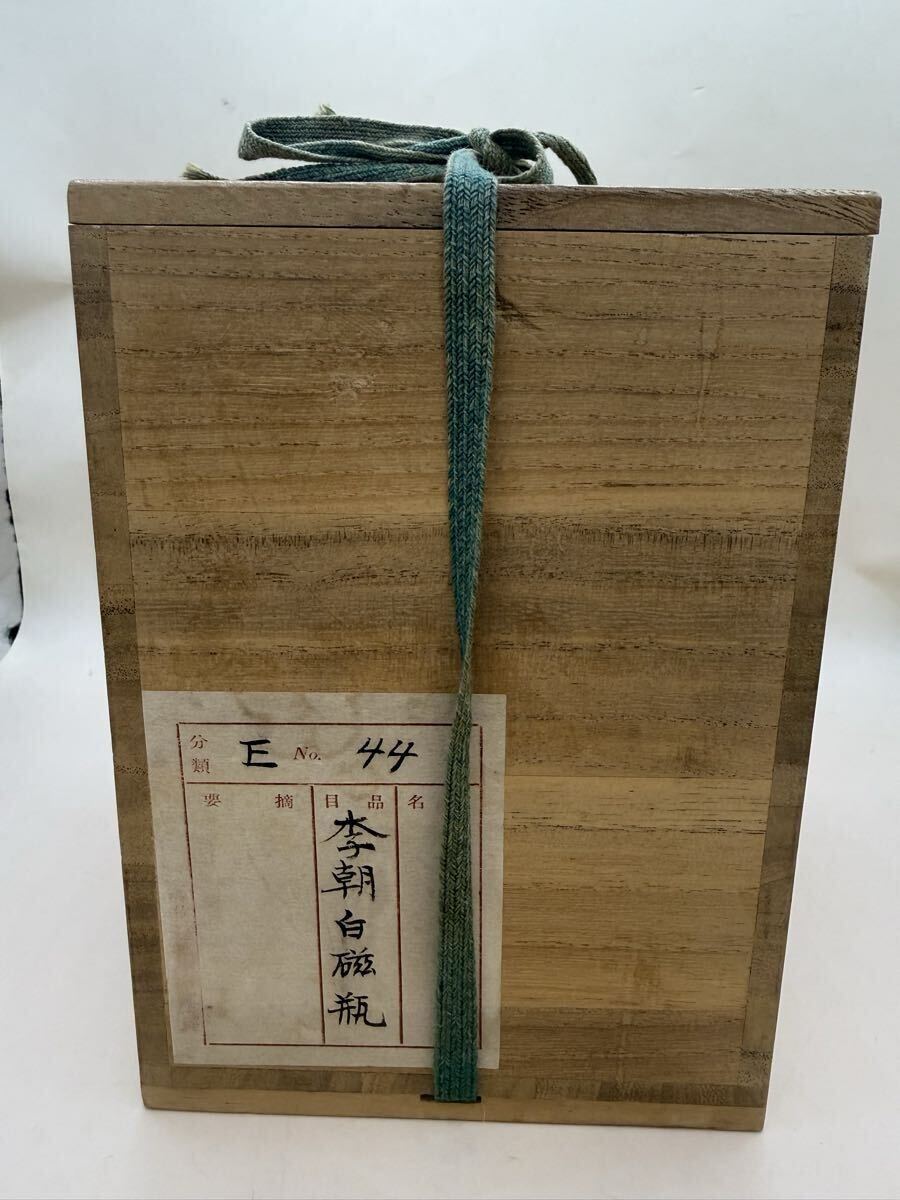 分類 E No. 44
要 摘 目 品 名
李朝白磁瓶